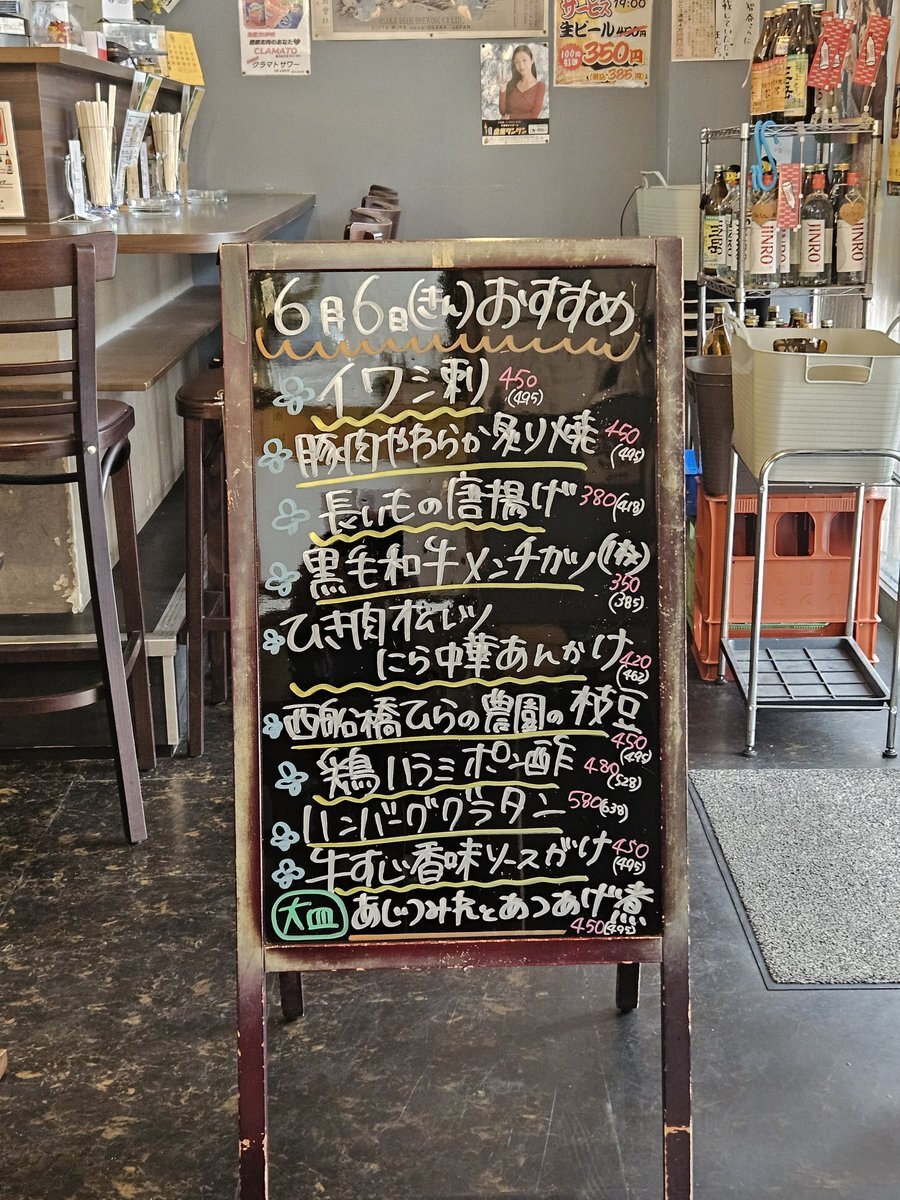 CLAMATO
クラマトサワー
サービス
19:00
生ビール 450円
100円引き 350円
(税込385円)
JINRO
JINRO
JINRO
6月6日(きん)おすすめ
イワシ刺 450
(495)
豚肉やわらか炙り焼 450
(495)
長いもの唐揚げ 380(418)
黒毛和牛メンチカツ(1枚)
350
(385)
ひき肉春雨
にら中華あんかけ 420
(462)
西船橋ひらの農園の枝豆
450
(495)
鶏ハラミポン酢 480
(528)
ハンバーググラタン 580(638)
牛すじ香味ソースがけ 450
(495)
大皿 あじつみれとあつあげ煮
450(495)